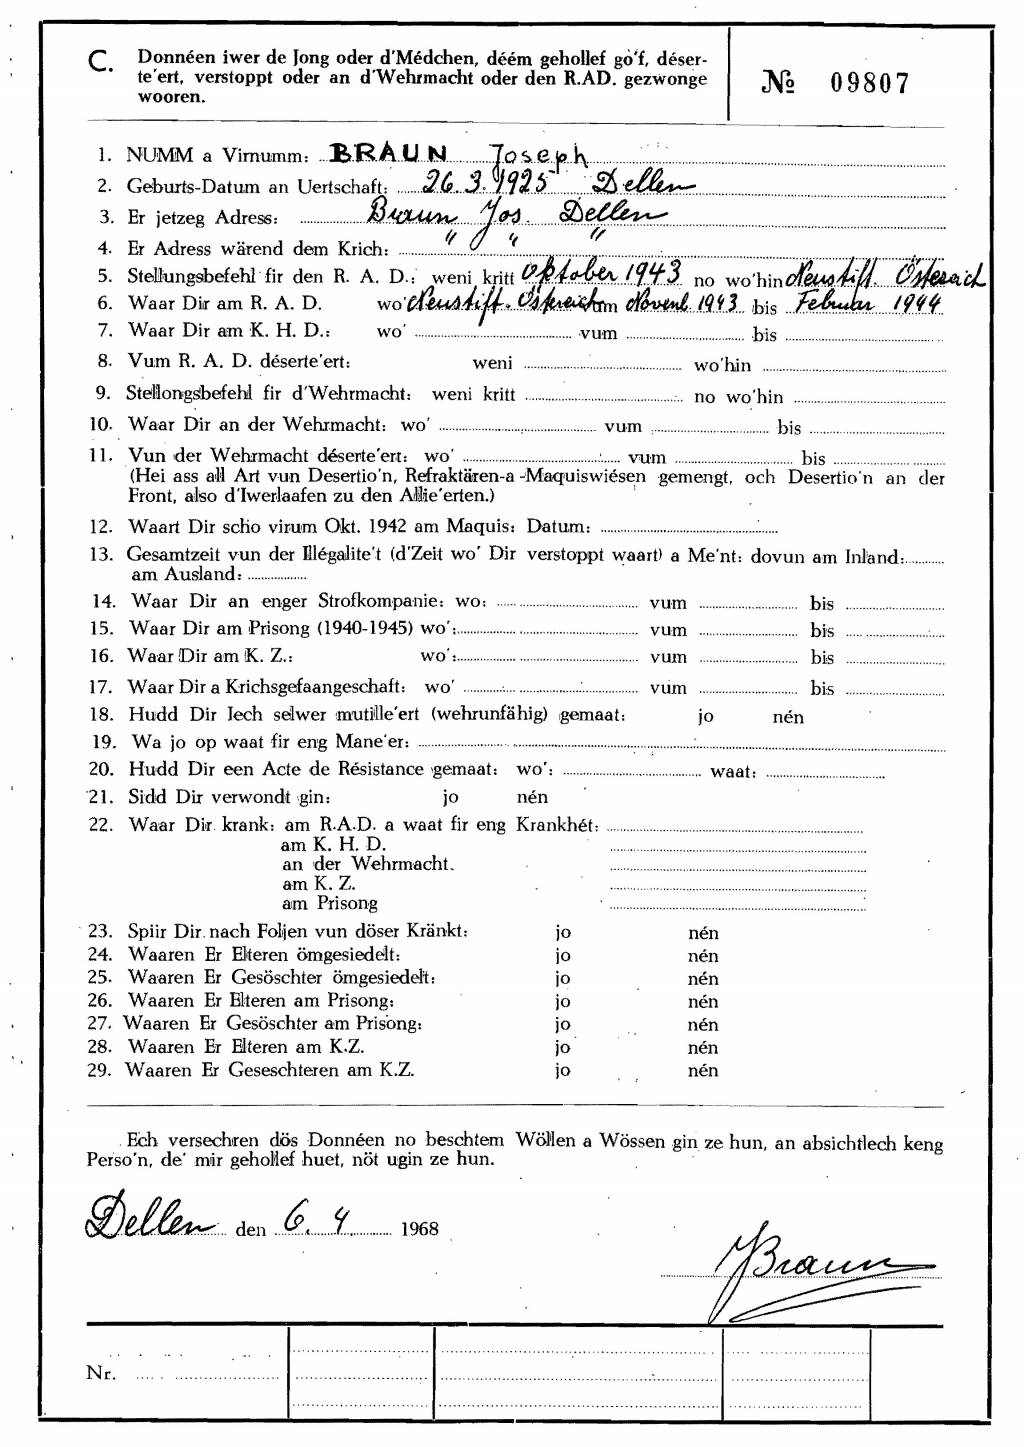 C. Donnéen iwer de Jong oder d'Médchen, déém gehollef gò'f, déser-
te'ert, verstoppt oder an d'Wehrmacht oder den R.AD. gezwonge
wooren.
№ 09807
1. NUMM a Virnumm: BRAUN Joseph
2. Geburts-Datum an Uertschaft: 26.3.1925 Dellen
3. Er jetzeg Adress: Braun Jos. Dellen
4. Er Adress wärend dem Krich: " " "
5. Stellungsbefehl fir den R. A. D.: weni kritt Oktober 1943 no wo'hin Neustift. Östereich
6. Waar Dir am R. A. D. wo' Neustift. Östreich vum Novenb 1943 bis Februar 1944
7. Waar Dir am K. H. D.: wo' vum bis
8. Vum R. A. D. déserte'ert: weni wo'hin
9. Stellongsbefehl fir d'Wehrmacht: weni kritt no wo'hin
10. Waar Dir an der Wehrmacht: wo' vum bis
11. Vun der Wehrmacht déserte'ert: wo' vum bis
(Hei ass all Art vun Desertio'n, Refraktären-a-Maquiswiésen gemengt, och Desertio'n an der
Front, also d'Iwerlaafen zu den Allie'erten.)
12. Waart Dir scho virum Okt. 1942 am Maquis: Datum:
13. Gesamtzeit vun der Illégalite't (d'Zeit wo' Dir verstoppt waart) a Me'nt: dovun am Inland:
am Ausland:
14. Waar Dir an enger Strofkompanie: wo: vum bis
15. Waar Dir am Prisong (1940-1945) wo': vum bis
16. Waar Dir am K. Z.: wo': vum bis
17. Waar Dir a Krichsgefaangeschaft: wo' vum bis
18. Hudd Dir Iech selwer mutille'ert (wehrunfähig) gemaat: jo nén
19. Wa jo op waat fir eng Mane'er:
20. Hudd Dir een Acte de Résistance gemaat: wo': waat:
21. Sidd Dir verwondt gin: jo nén
22. Waar Dir krank: am R.A.D. a waat fir eng Krankhét:
am K. H. D.
an der Wehrmacht.
am K. Z.
am Prisong
23. Spiir Dir nach Foljen vun döser Kränkt: jo nén
24. Waaren Er Elteren ömgesiedelt: jo nén
25. Waaren Er Gesöschter ömgesiedelt: jo nén
26. Waaren Er Elteren am Prisong: jo nén
27. Waaren Er Gesöschter am Prisong: jo nén
28. Waaren Er Elteren am K.Z. jo nén
29. Waaren Er Geseschteren am K.Z. jo nén
Ech versechren dös Donnéen no beschtem Wöllen a Wössen gin ze hun, an absichtlech keng
Perso'n, de' mir gehollef huet, nöt ugin ze hun.
Dellen den 6. 4. 1968
JBraun
Nr.